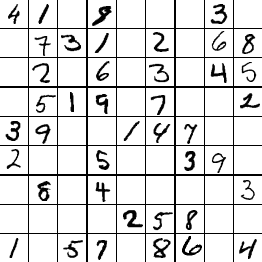 4 1 9 3
7 3 1 2 6 8
2 6 3 4 5
5 1 9 7 2
3 9 1 4 7
2 5 3 9
8 4 3
2 5 8
1 5 7 8 6 4